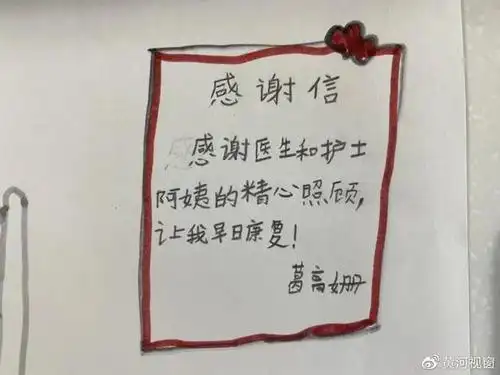 感谢信
感谢医生和护士
阿姨的精心照顾,
让我早日康复!
葛高姗
@黄河视窗